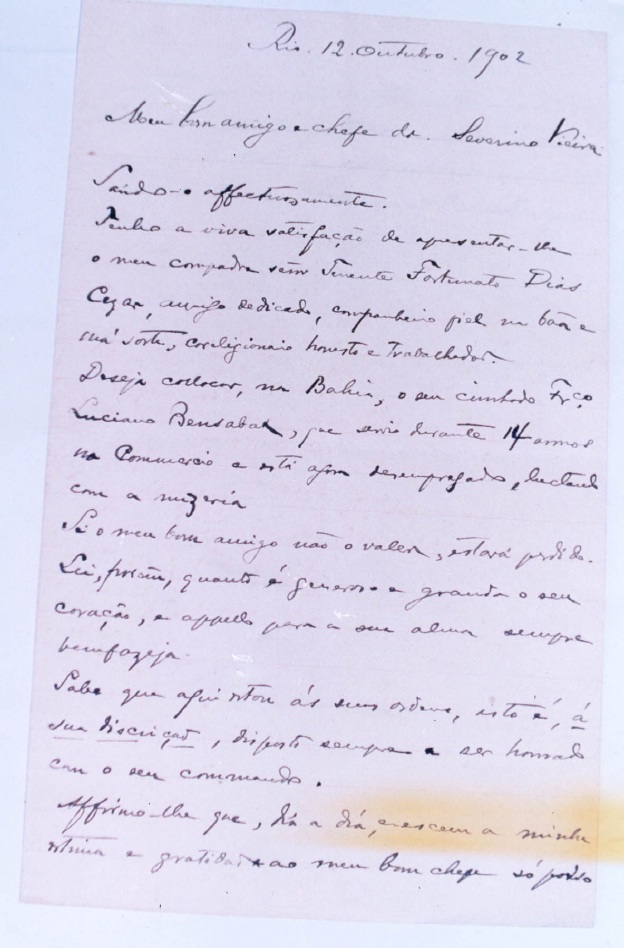 Rio. 12. Outubro. 1902
Meu bom amigo e chefe dr. Severino Vieira.
Saúdo-o affectuosamente.
Tenho a viva satisfação de apresentar-lhe
o meu compadre Tenente Fortunato Dias
Cezar, amigo dedicado, companheiro fiel na bôa e
má sorte, coreligionario honesto e trabalhador.
Deseja collocar, na Bahia, o seu cunhado Frço.
Luciano Bensabat, que servio durante 14 annos
no Commercio e está agora desempregado, luctando
com a mizeria
Si o meu bom amigo não o valer, estará perdido.
Sei, porém, quanto é generoso e grande o seu
coração, e appello para a sua alma sempre
bemfazeja.
Sabe que aqui estou ás suas ordens, isto é, á
sua discrição, disposto sempre a ser honrado
com o seu commando.
Affirmo-lhe que, dia a dia, crescem a minha
estima e gratidão ao meu bom chefe só posso